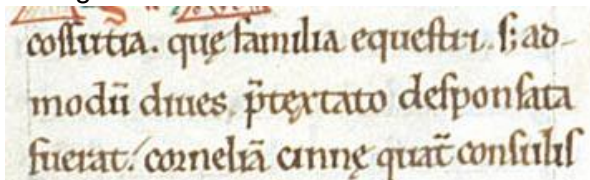 cossutia. quę familia equestri. s; ad-
modū diues, p̄tęxtato desponsata
fuerat. corneliā cinnę quat̄ consulis